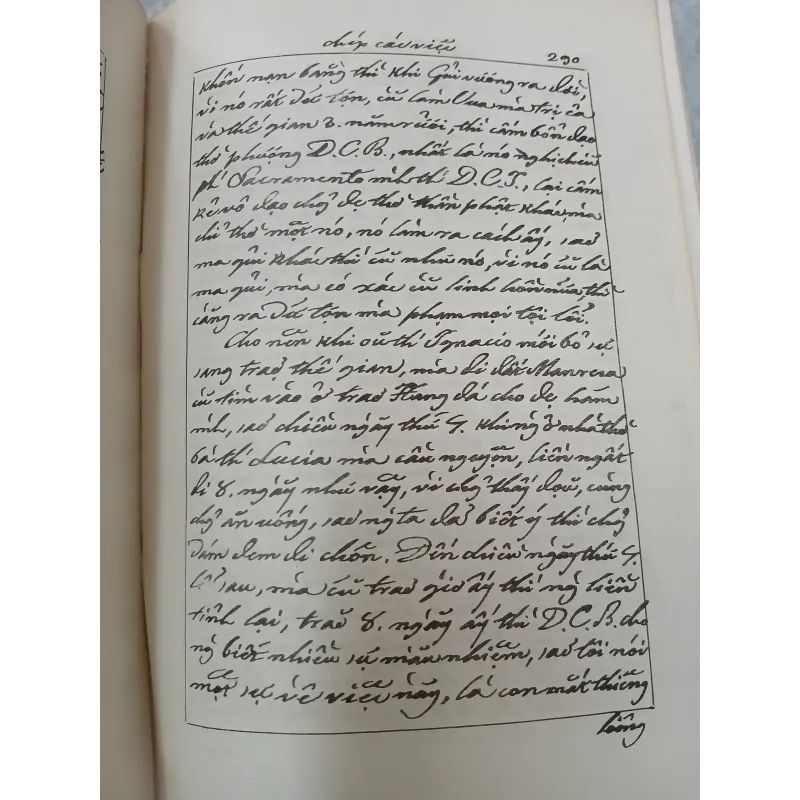 chép các việc
290
khốn nạn bằng thì khi Gủi vương ra đời,
vì nó rất dữ tợn, cũ làm Vua mà trị cả
và thế gian 3. năm rưởi, thì cấm bổn đạo
thờ phượng D.C.B., nhất là nó nghịch cũ
phí Sacramento mình thí D.C.J., lại cấm
kẻ vô đạo chẳng đặng thờ thần phật khác, mà
chỉ thờ một nó, nó làm ra cách ấy, sao
ma qủi khác thì cũ như nó, vì nó cũ là
ma qủi, mà có xác cũ linh hồn nữa, thì
càng ra dữ tợn mà phạm mọi tội lỗi.
Cho nên khi oũ thí Ignacio mới bỏ sự
sang traơ thế gian, mà đi đất Manresa
cũ tìm vào ở traơ Hang đá cho đặng hãm
mình, sao chiều ngày thứ 7. khi ngồi ở nhà thờ
bà thí Lucia mà cầu nguyện, liền ngất
đi 8. ngày như vậy, vì chẳng thấy động, cũng
chẳng ăn uống, sao người ta đã biết ý thì chẳng
dám đem đi chôn. Đến chiều ngày thứ 7.
lễ sau, mà cũ traơ giờ ấy thì người liền
tỉnh lại, traơ 8. ngày ấy thì D.C.B. cho
người biết nhiều sự mầu nhiệm, sao tôi nói
một sự về việc nầy, là con mắt thiêng
liêng